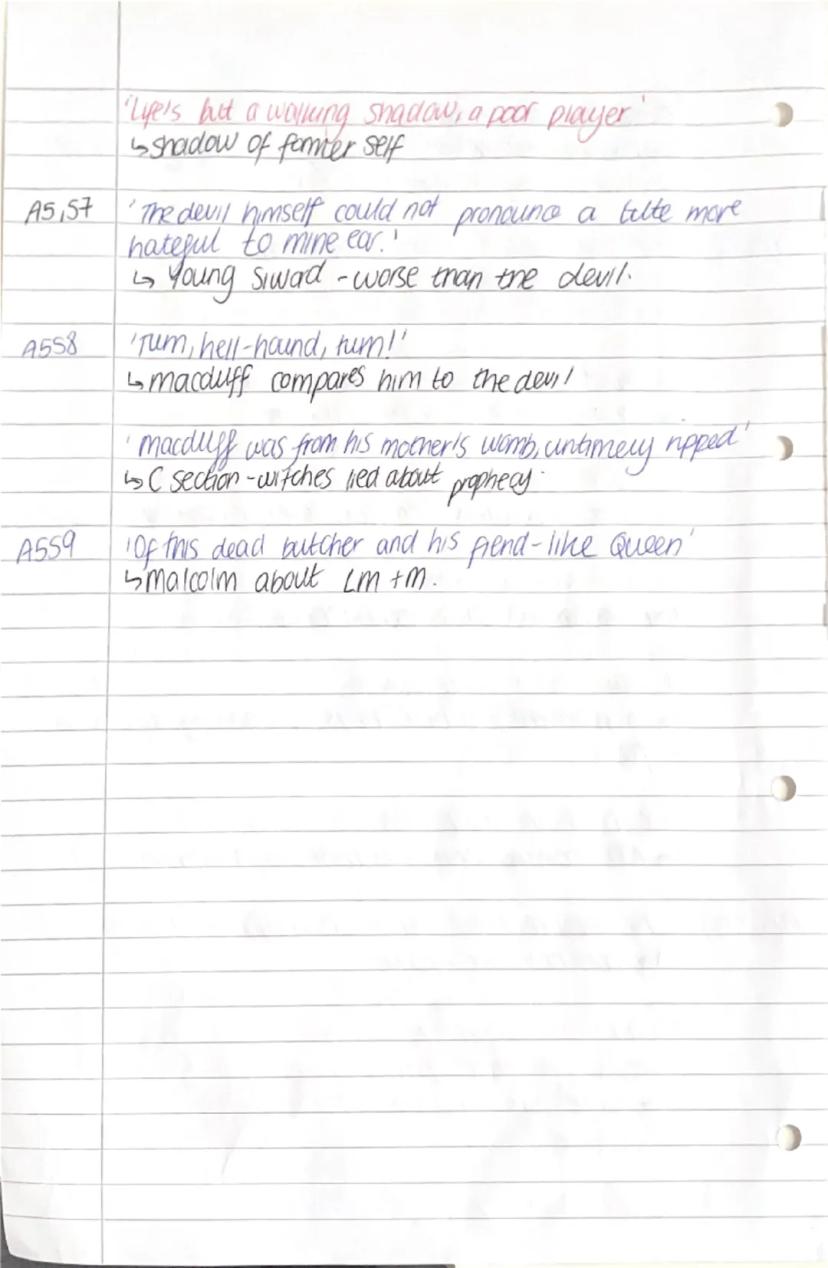 'Life's but a walking shadow, a poor player'
↳ shadow of former self
A5,S7 'The devil himself could not pronounce a title more
hateful to mine ear.'
↳ Young Siwad - worse than the devil.
A5S8 'Turn, hell-hound, turn!'
↳ macduff compares him to the devil
'macduff was from his mother's womb, untimely ripped'
↳ C section - witches lied about prophecy
A5S9 'Of this dead butcher and his fiend-like Queen'
↳ malcolm about LM + M.